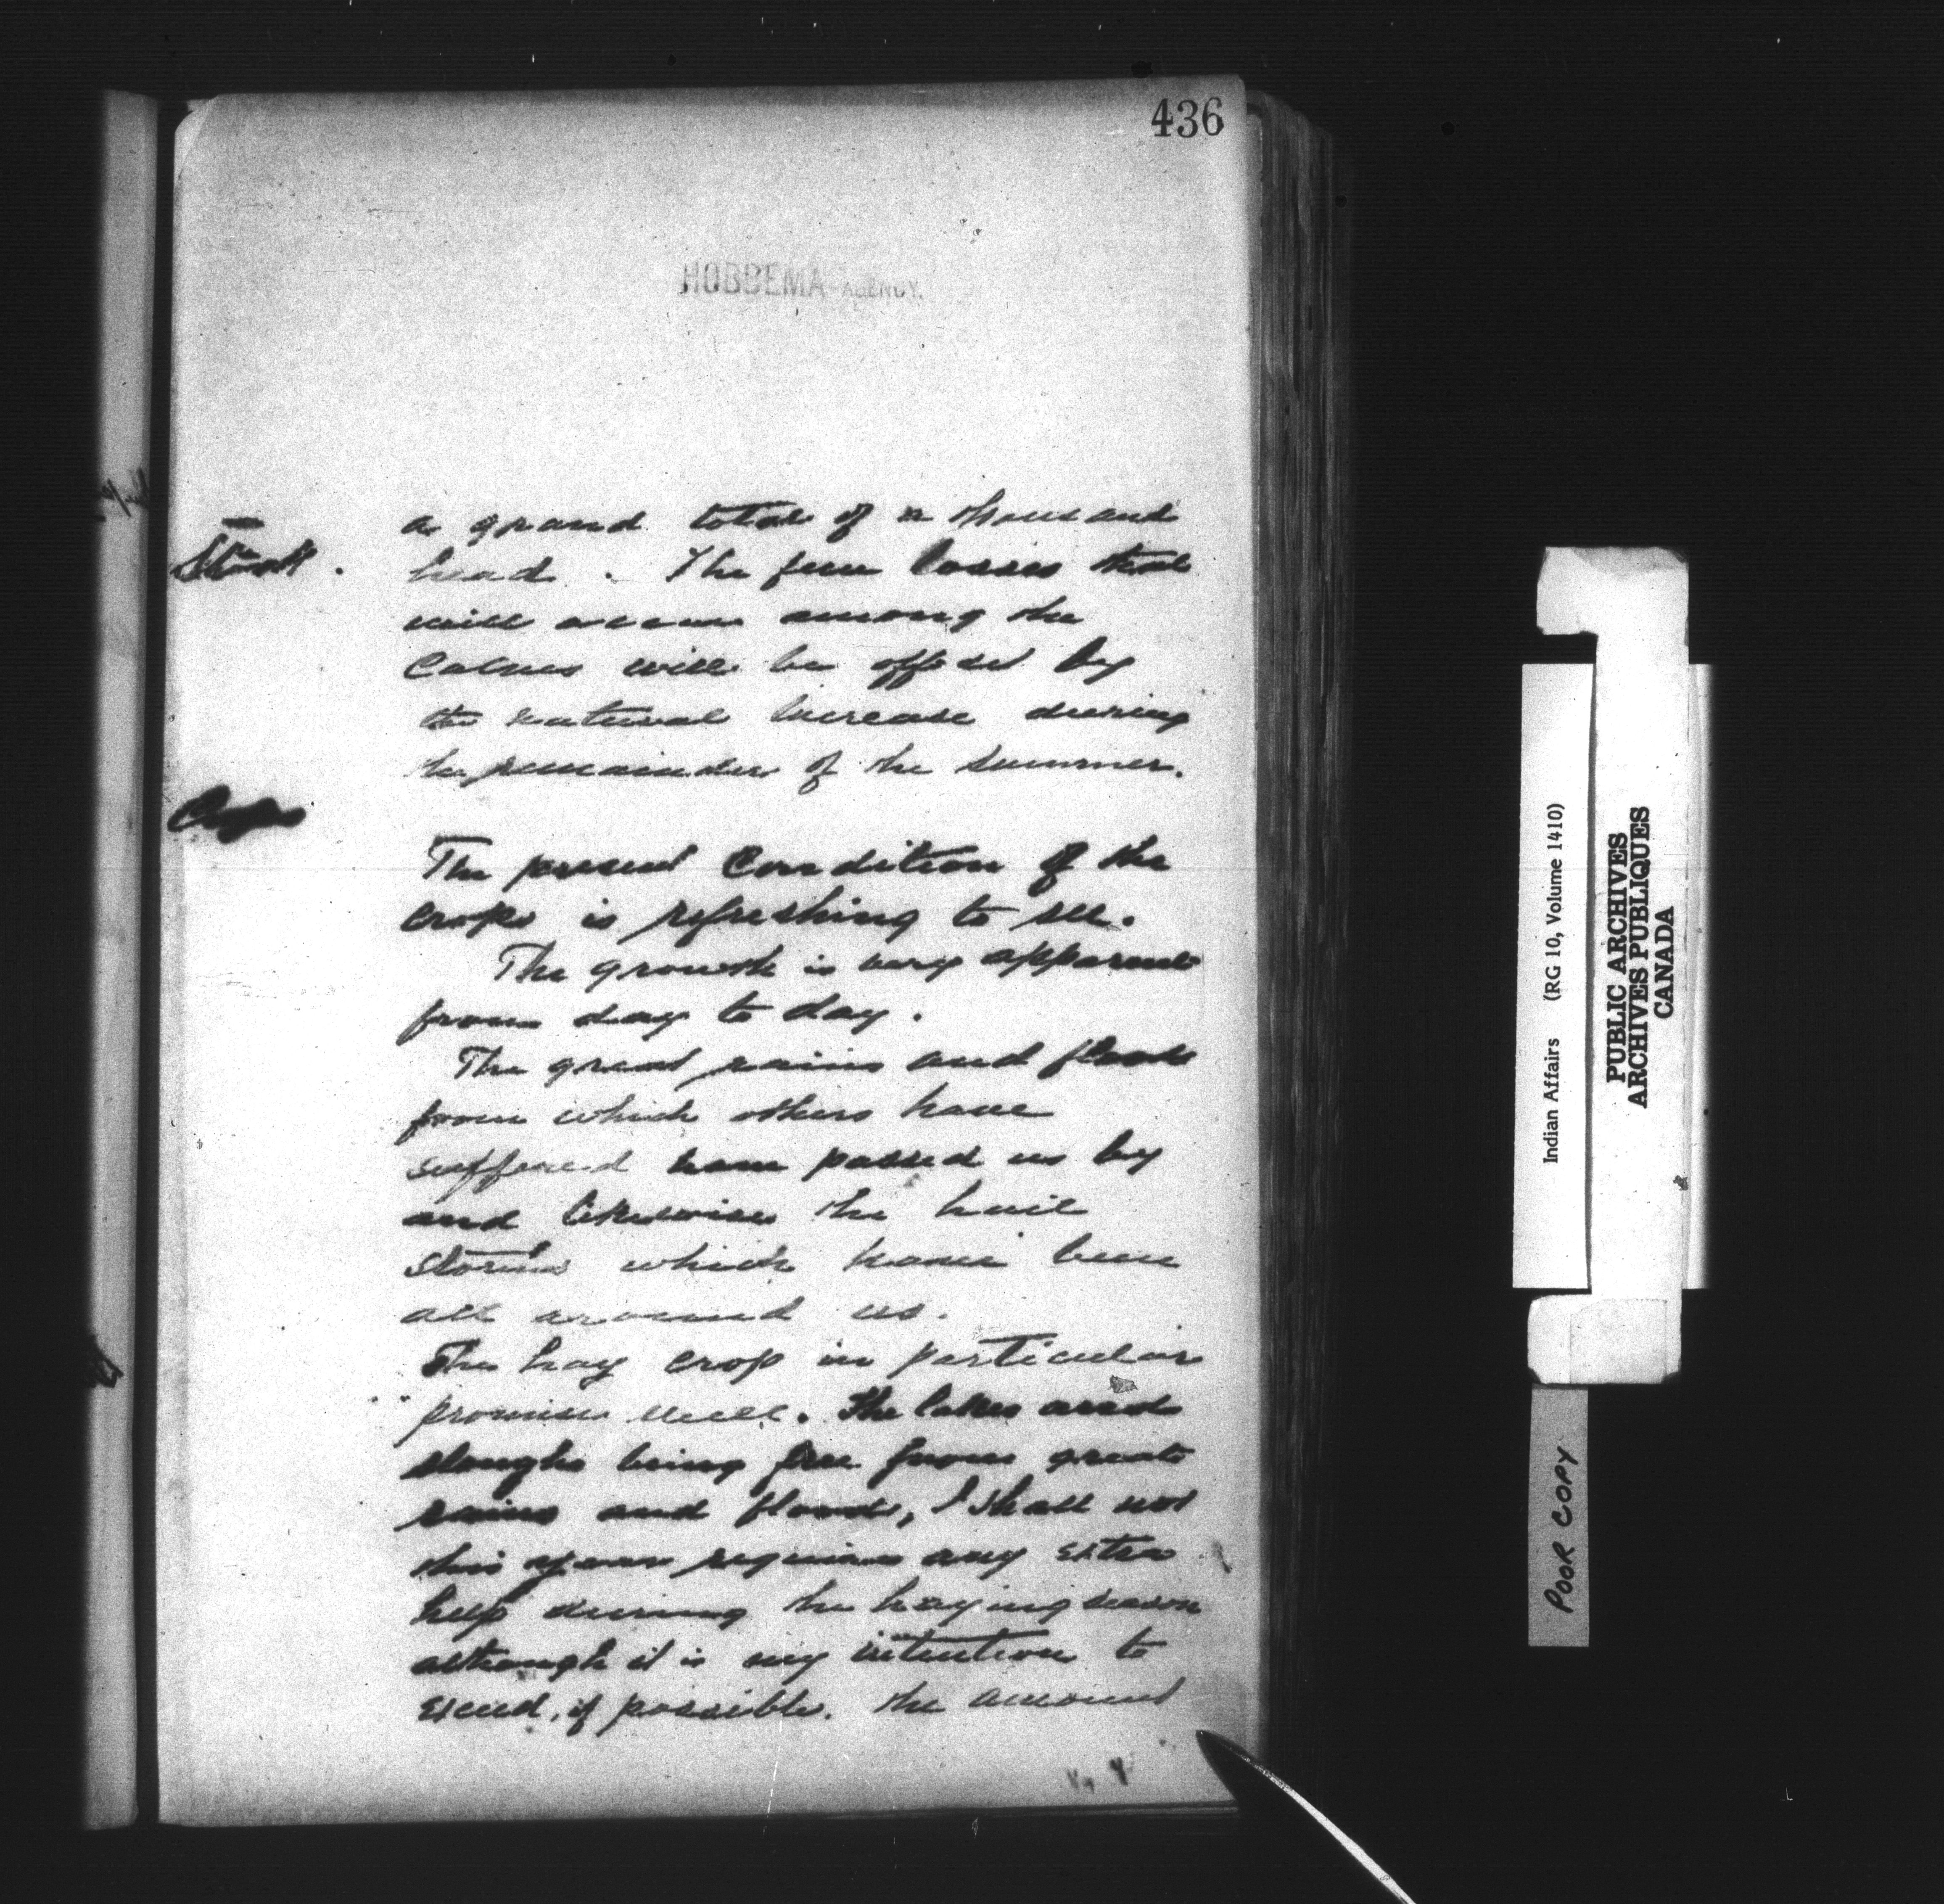 436
HOBBEMA AGENCY.
Stock.
a grand total of a thousand
head. The few losses that
will occur among the
Calves will be offset by
the natural increase during
the remainder of the summer.
Crops
The present Condition of the
crops is refreshing to see.
The growth is very apparent
from day to day.
The great rains and floods
from which others have
suffered have passed us by
and likewise the hail
storms which have been
all around us.
The hay crop in particular
promises well. The lakes and
sloughs being free from great
rains and floods, I shall not
this year require any extra
help during the haying season
although it is my intention to
exceed, if possible. the amount
Indian Affairs (RG 10, Volume 1410)
PUBLIC ARCHIVES
ARCHIVES PUBLIQUES
CANADA
POOR COPY